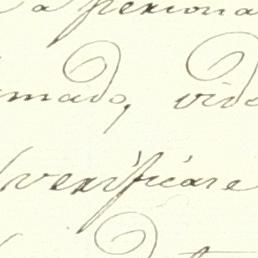 a persona
mado, vide
verificare